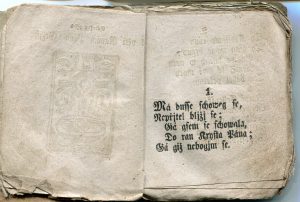 1.
Má dusse schoweg se,
Nepřjtel bljžj se;
Gá gsem se schowala,
Do ran Krysta Pána;
Gá giž nebogjm se.